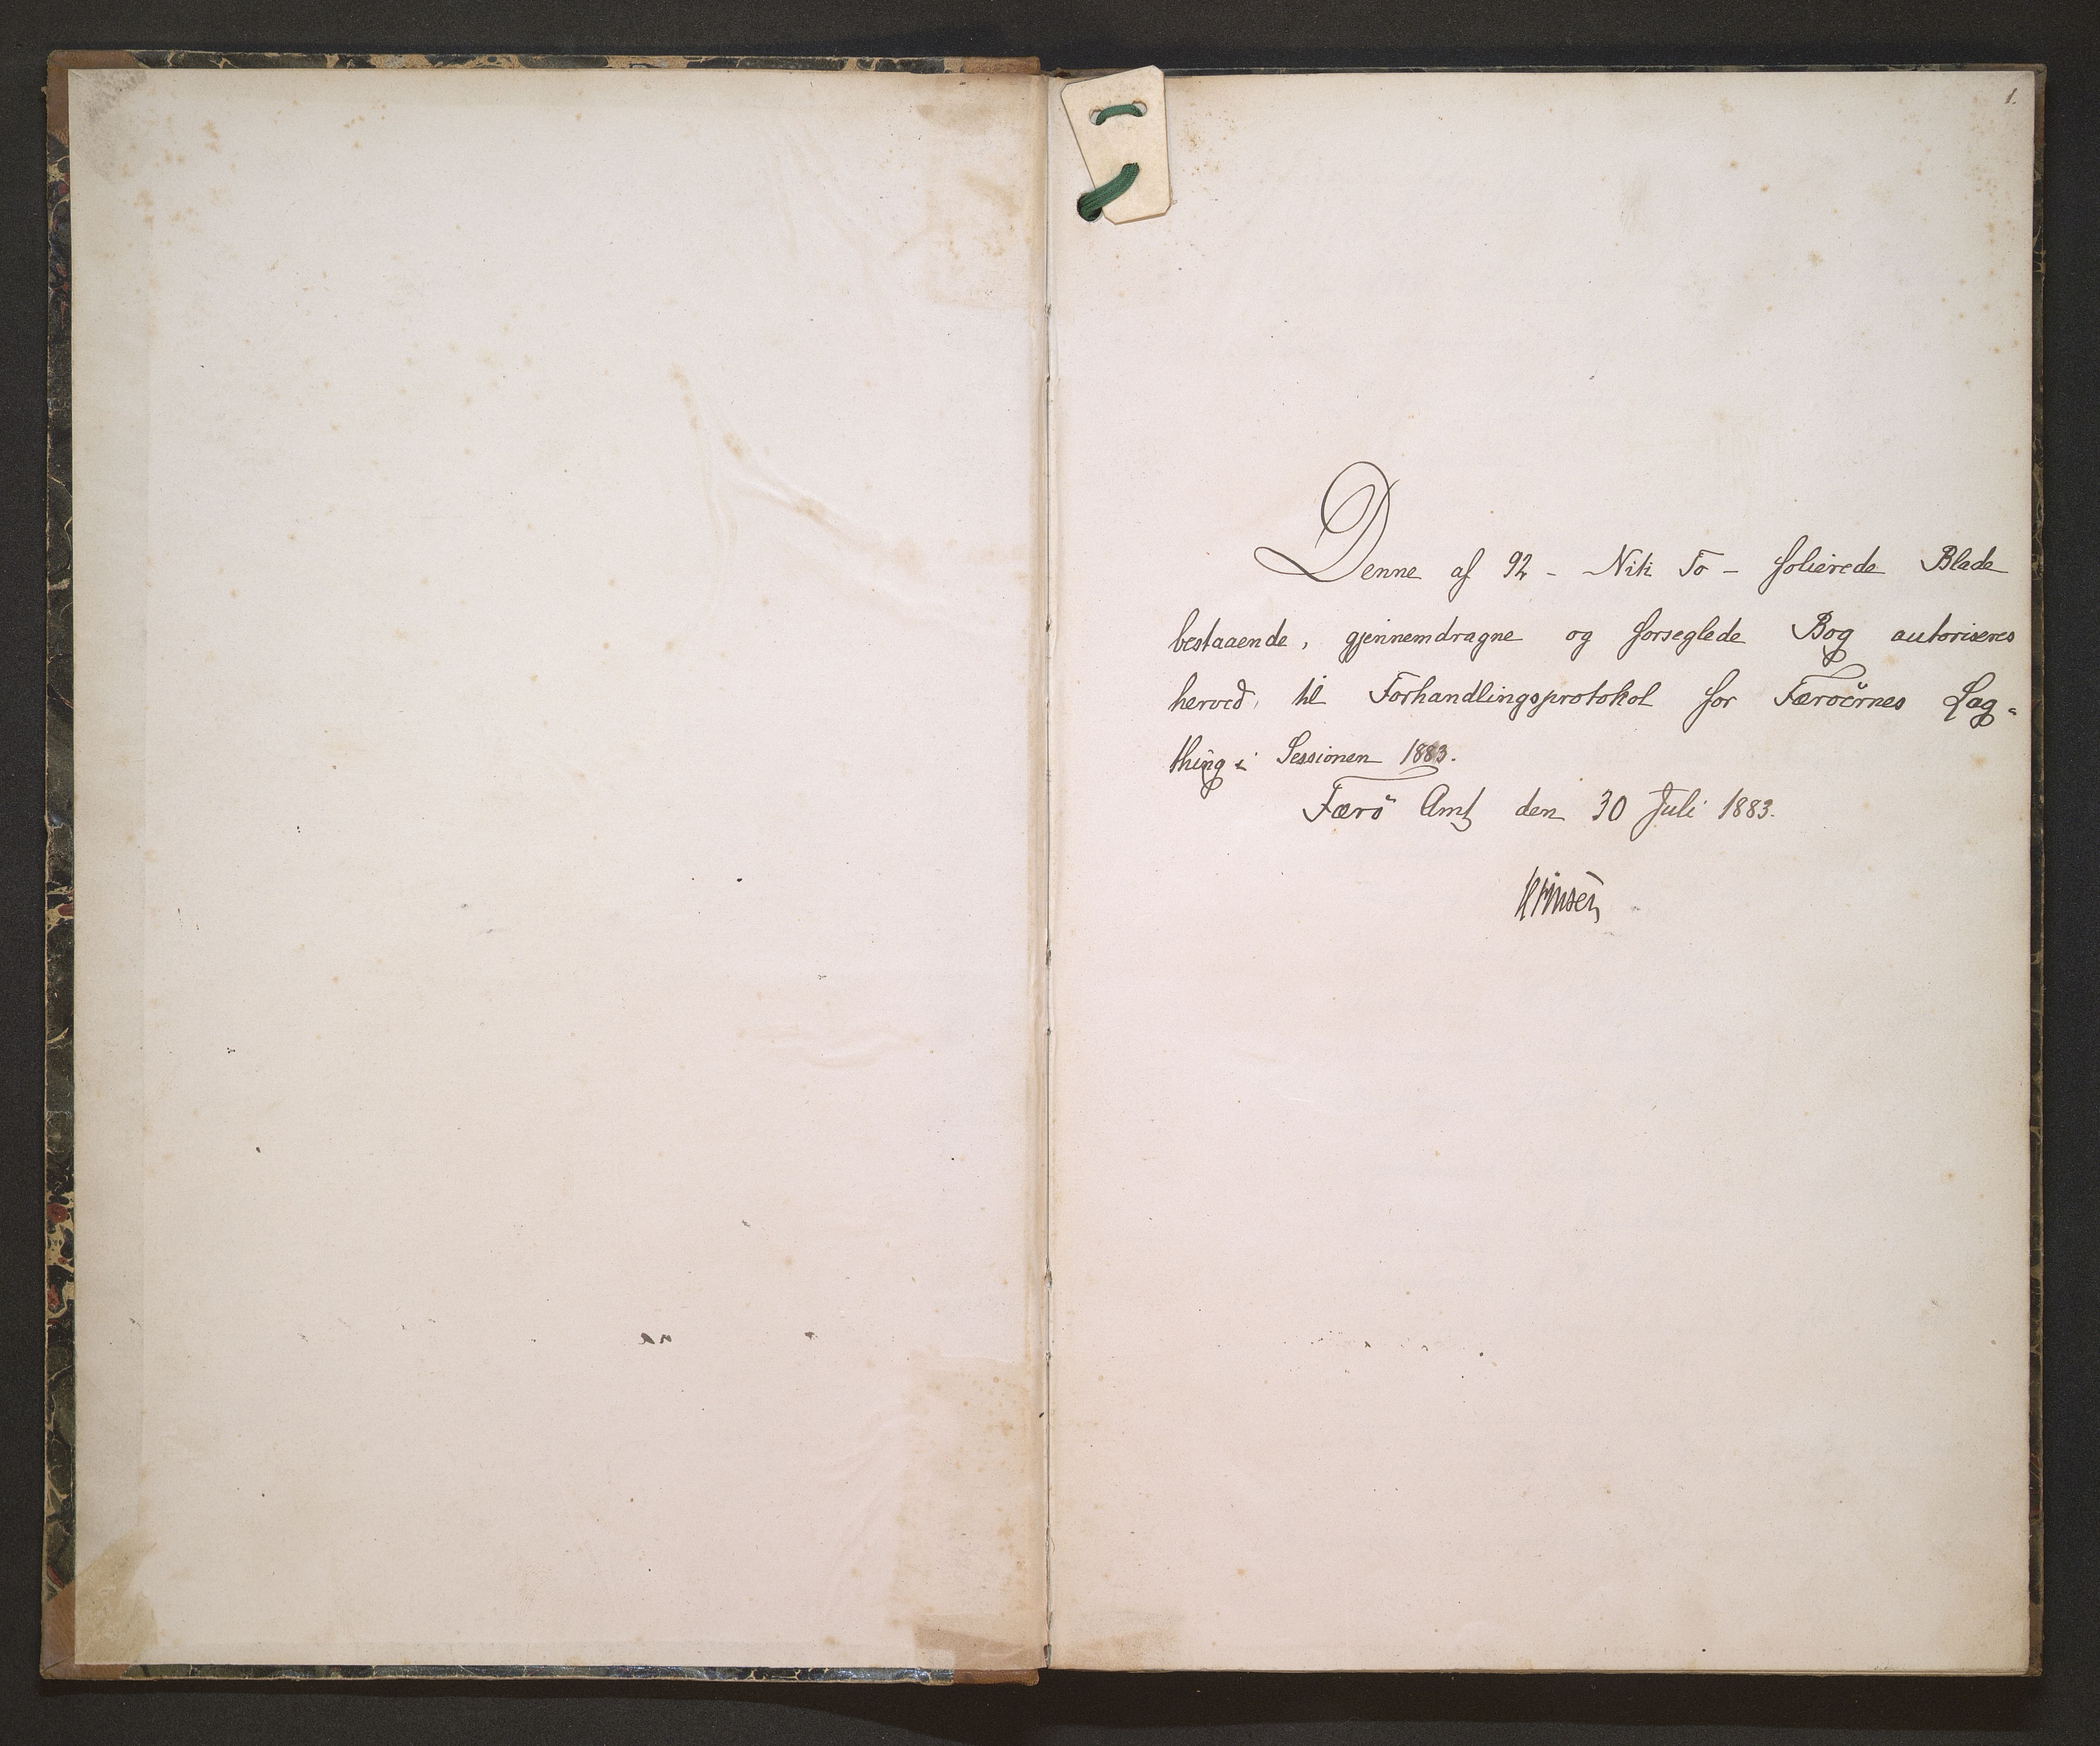 1.
Denne af 92 - Niti To - folierede Blade
bestaaende, gjennemdragne og forseglede Bog autoriseres
herved, til Forhandlingsprotokol for Færöernes Lag-
thing i Sessionen 1883.
Færö Amt den 30 Juli 1883.